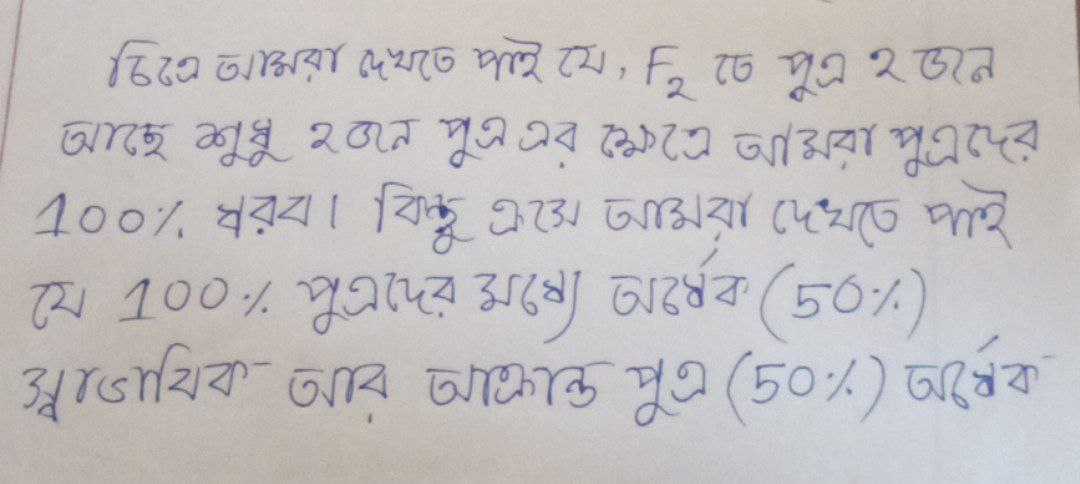 চিত্রে আমরা দেখতে পাই যে, F₂ তে পুত্র ২ জন
আছে শুধু ২জন পুত্র এর ক্ষেত্রে আমরা পুত্রদের
100% ধরব। কিন্তু এসে আমরা দেখতে পাই
যে 100% পুত্রদের মধ্যে অর্ধেক (50%)
স্বাভাবিক আর আক্রান্ত পুত্র (50%) অর্ধেক